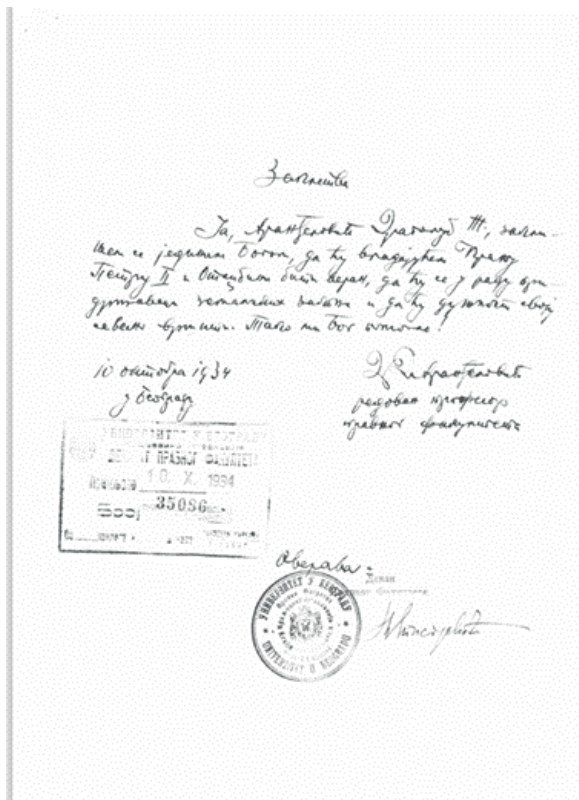 Заклетва
Ја, Аранђеловић Драгољуб Т., закли-
њем се јединим Богом, да ћу владајућем Краљу
Петру II и Отаџбини бити веран, да ћу се у раду при-
државати земаљских закона и да ћу дужност своју
савесно вршити. Тако ми Бог помогао!
10 октобра 1934
у Београду
Д Аранђеловић
редован професор
правног факултета
УНИВЕРЗИТЕТ У БЕОГРАДУ
ДЕКАНАТ ПРАВНОГ ФАКУЛТЕТА
10. X. 1934
35086
Оверава:
Декан
УНИВЕРЗИТЕТ У БЕОГРАДУ
UNIVERZITET U BEOGRADU